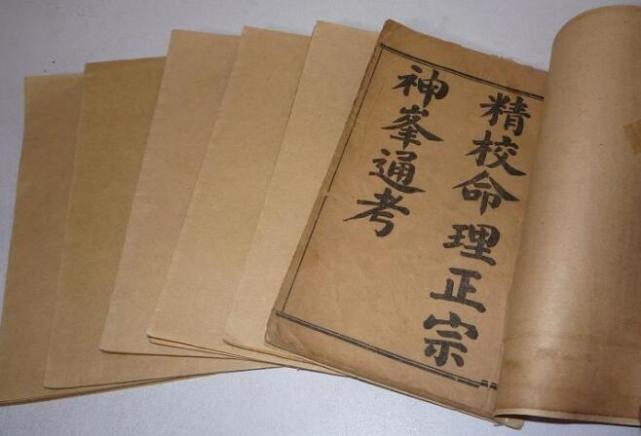 精校命理正宗
神峯通考